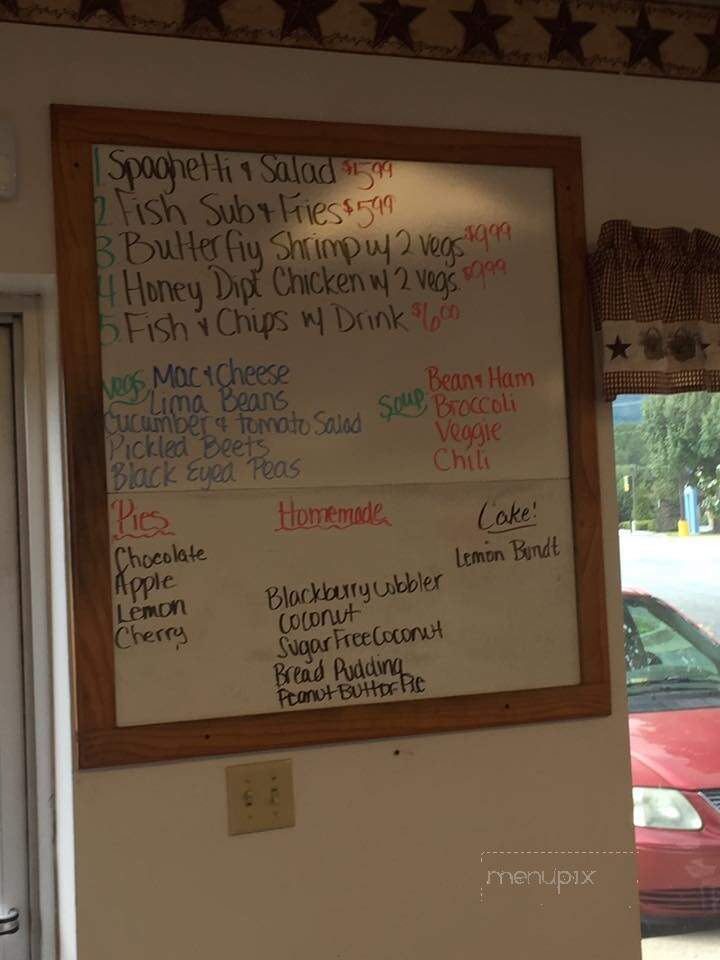 1 Spaghetti & Salad $5.99
2 Fish Sub & Fries $5.99
3 Butterfly Shrimp w/ 2 vegs $9.99
4 Honey Dipt Chicken w/ 2 vegs. $9.99
5 Fish & Chips w/ Drink $6.00
vegs Mac & Cheese
Lima Beans
Cucumber & Tomato Salad
Pickled Beets
Black Eyed Peas
Soup Bean & Ham
Broccoli
Veggie
Chili
Pies
Chocolate
Apple
Lemon
Cherry
Homemade
Blackburry Cobbler
Coconut
Sugar Free Coconut
Bread Pudding
Peanut Butter Pie
Cake!
Lemon Bundt
menupix